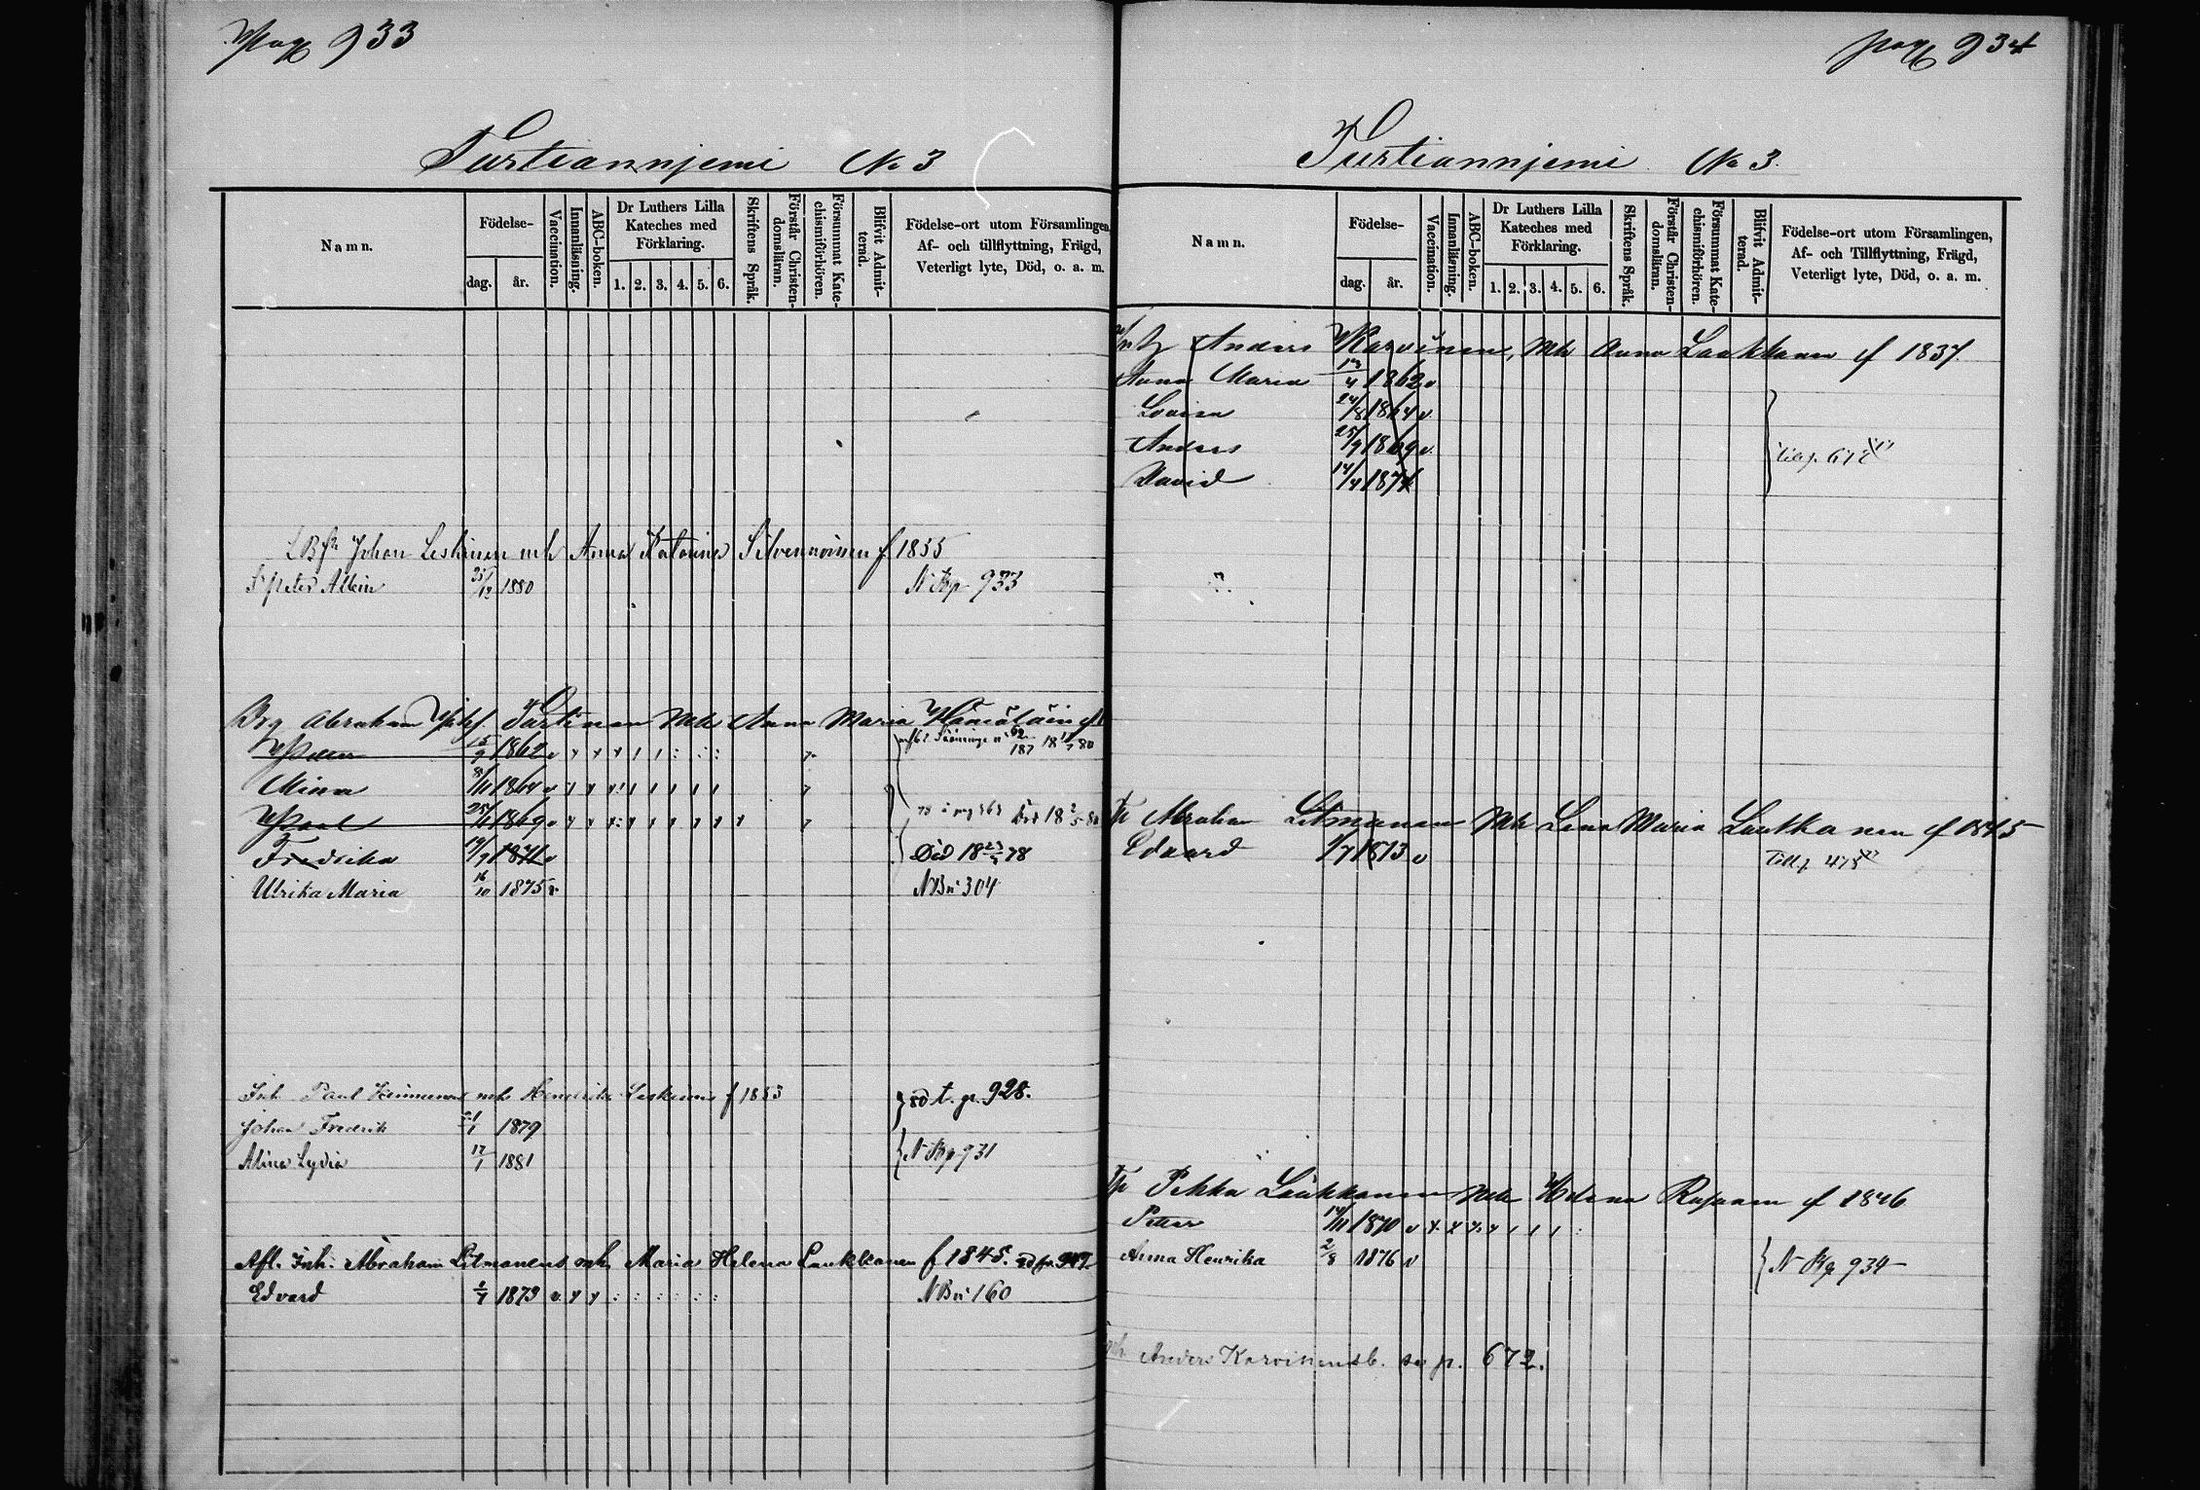 Pag 933
Turtianniemi No 3
Namn.
Födelse-
dag.
år.
Vaccination.
Innanläsning.
ABC-boken.
Dr Luthers Lilla
Kateches med
Förklaring.
1. 2. 3. 4. 5. 6.
Skriftens Språk.
Förstår Christen-
domsläran.
Försummat Kate-
chismiförhören.
Blifvit Admit-
terad.
Födelse-ort utom Församlingen,
Af- och tillflyttning, Frägd,
Veterligt lyte, Död, o. a. m.
Johan Leskinen mh Anna Katarina Silvennoinen f 1855
Peter Albin 31/12 1880 N Bp 933
Abraham Turtinen Mh Anna Maria
15/9 1862 v
Mina 8/11 1864 v
Paul 25/11 1869 v
Fredrika 14/7 1871 v Död 18 23/5 78
Ulrika Maria 16/10 1875 v N B n 304
Inh Paul Kinnunen mh Henrika Leskinen f 1853 80 t. p. 928.
Johan Fredrik 21/1 1879
Alina Lydia 17/1 1881 N Bp 931
Afl. Inh. Abraham Litmanens mh Maria Helena Laukkanen f 1845.
Edvard 5/7 1873 v N B n 160
pag 934
Turtianniemi No 3.
Namn.
Födelse-
dag.
år.
Vaccination.
Innanläsning.
ABC-boken.
Dr Luthers Lilla
Kateches med
Förklaring.
1. 2. 3. 4. 5. 6.
Skriftens Språk.
Förstår Christen-
domsläran.
Försummat Kate-
chismiförhören.
Blifvit Admit-
terad.
Födelse-ort utom Församlingen,
Af- och Tillflyttning, Frägd,
Veterligt lyte, Död, o. a. m.
Anders Karvinen, Mh Anna Laukkanen f 1837
Anna Maria 1862 v
Lovisa 24/8 1864 v
Anders 25/9 1869 v
David 14/4 1874
Abraham Litmanen Mh Lena Maria Laukkanen f 1845
Edvard 5/7 1873 v
Pekka Laukkanen Mh Helena Repanen f 1846
Petter 14/11 1870 v
Anna Henrika 2/8 1876 v N Bp 934
Anders Karvinens b. se p. 672.